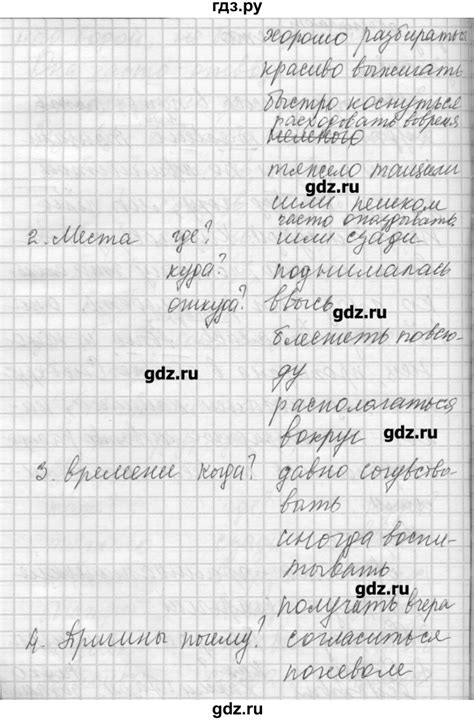 гдз.ру
хорошо разбираться
красиво выжигать
быстро коснуться
расходовать вовремя
немного
тяжело тащили
gdz.ru
шли пешком
часто опаздывать
2. Места где? шли сзади
куда? поднималась
откуда? ввысь
gdz.ru
блестеть повсю-
gdz.ru
ду
располагаться
вокруг gdz.ru
3. времени когда? давно сочувство-
вать
иногда воспи-
тывать
gdz.ru
получить вчера
4. Причины почему? согласиться
поневоле
gdz.ru
gdz.ru